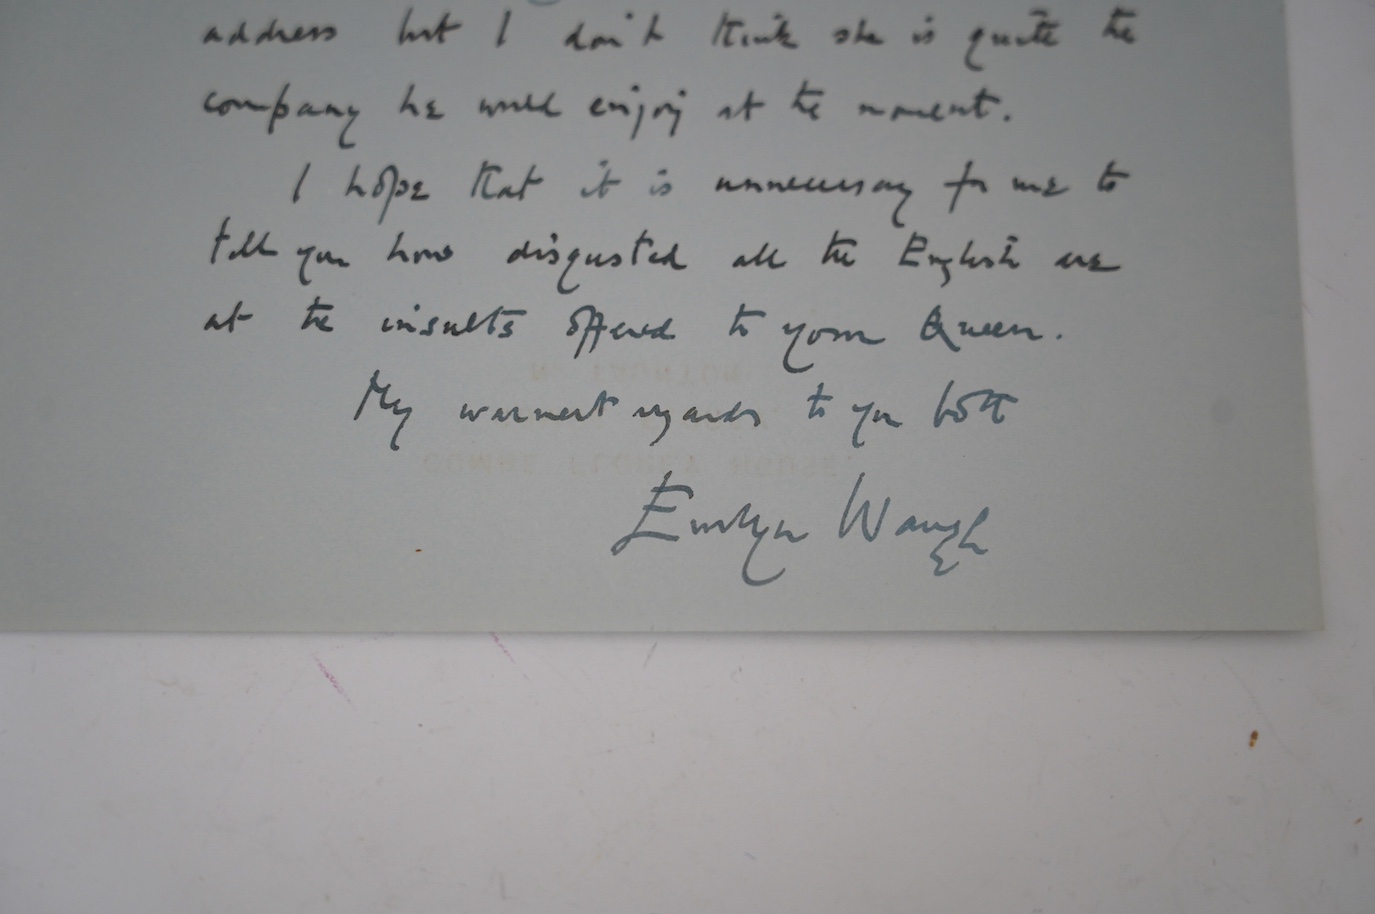 address but I don't think she is quite the
company he would enjoy at the moment.
I hope that it is unnecessary for me to
tell you how disgusted all the English are
at the insults offered to your Queen.
My warmest regards to you both
Evelyn Waugh